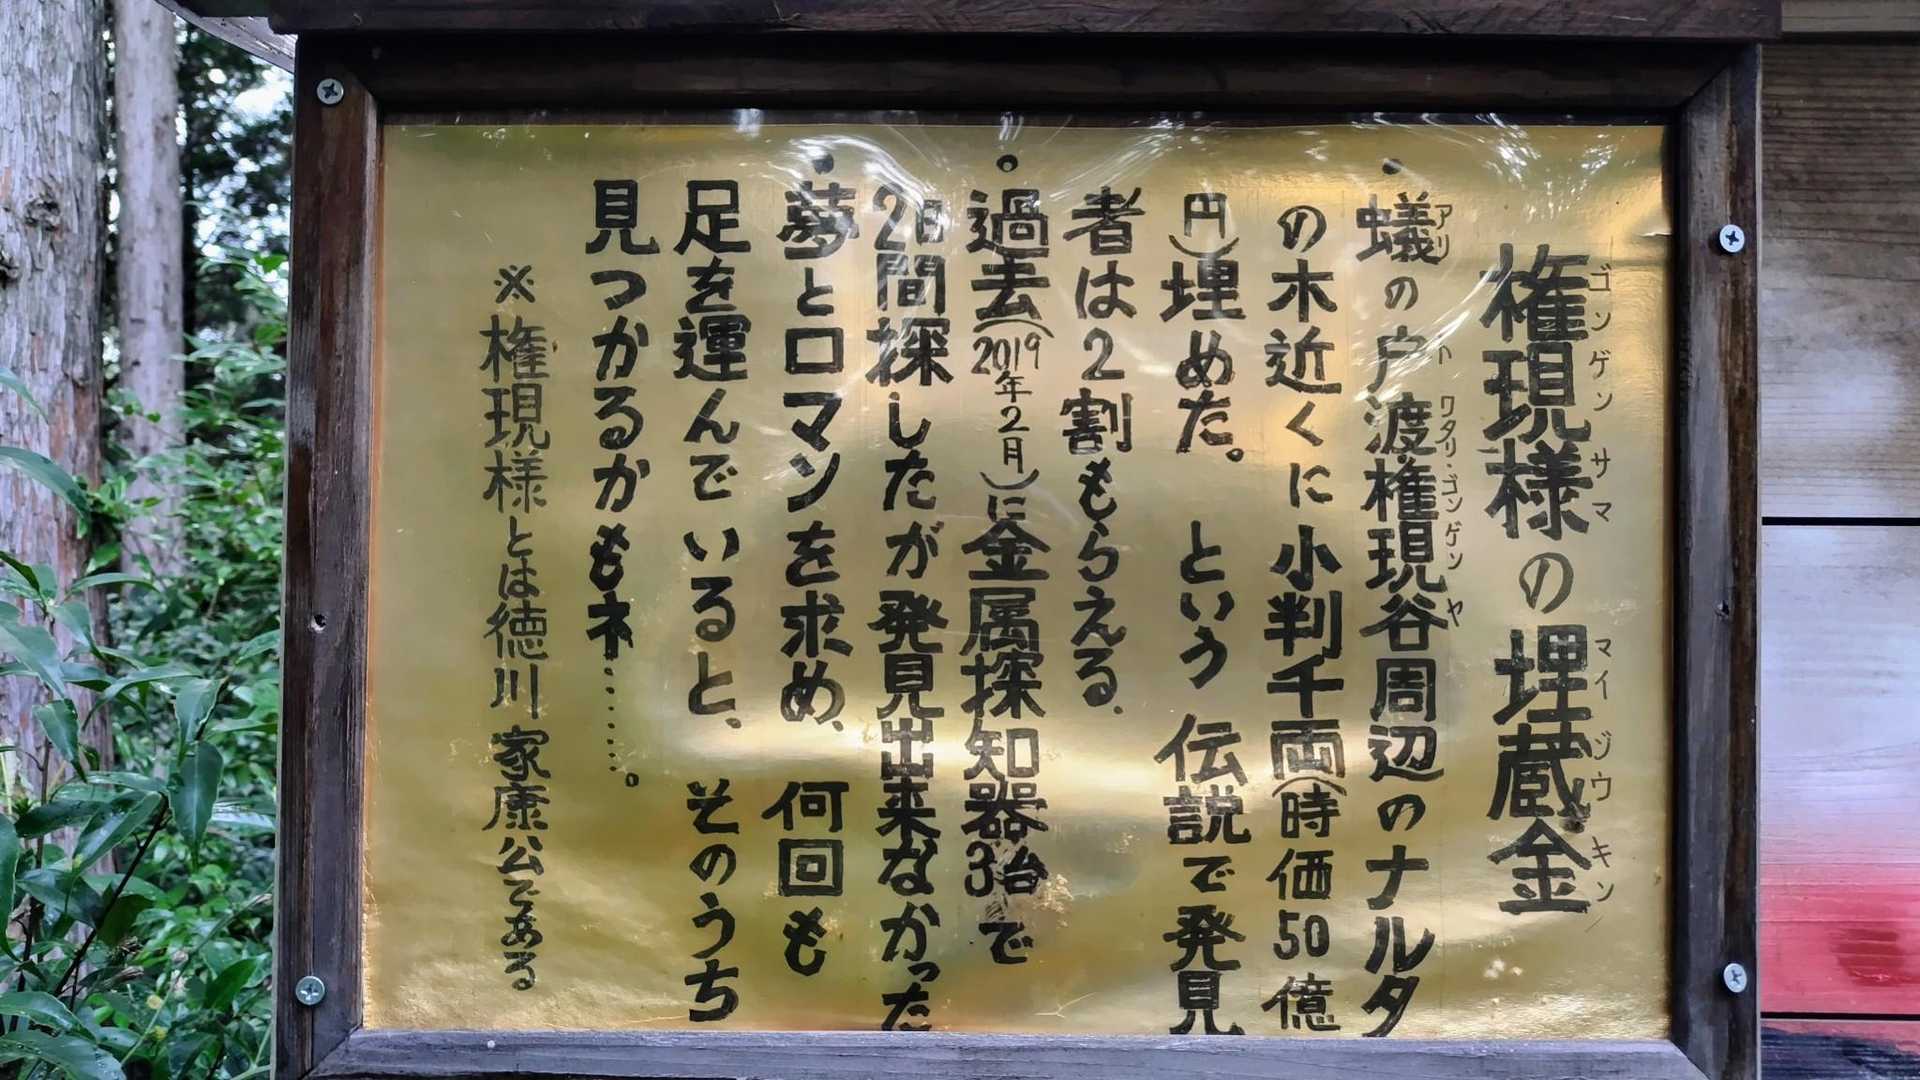 権現様の埋蔵金
ゴンゲンサマ マイゾウキン
・蟻の戸渡権現谷周辺のナルタ
アリ ト ワタリ・ゴンゲン ヤ
の木近くに小判千両(時価50億
円)埋めた。という伝説で発見
者は2割もらえる.
・過去(2019年2月)に金属探知器3台で
2日間探したが発見出来なかった
・夢とロマンを求め、何回も
足を運んでいると、そのうち
見つかるかもネ……。
※権現様とは徳川家康公である